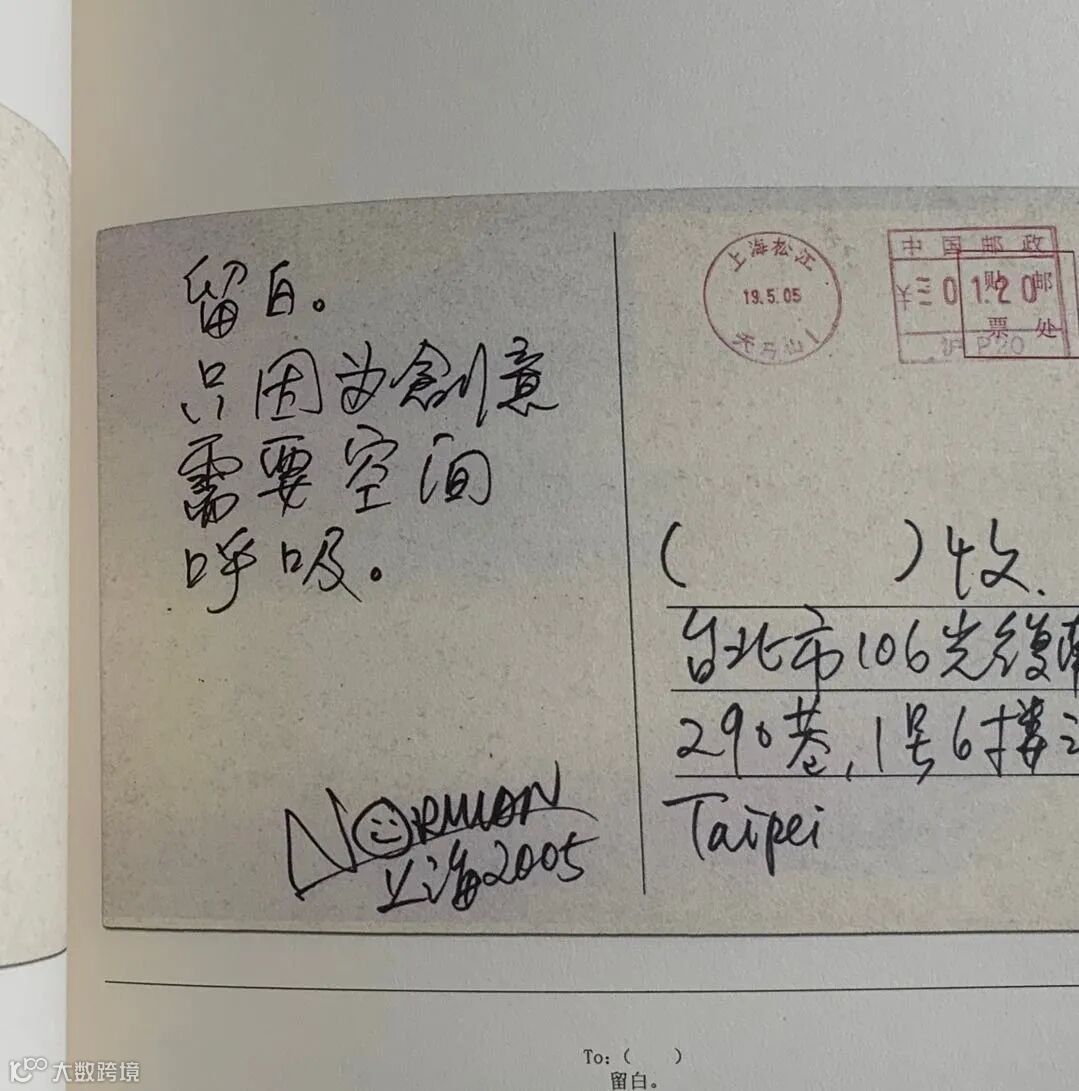 留白。
只因为創意
需要空间
呼吸。
NORMAN
上海2005
上海松江
19.5.05
天马山1
中国邮政
01.20
贴邮
票处
沪P20
(　　　)收.
台北市106光復南
290巷,1号6楼之
Taipei
To:(　　)
留白。
大数跨境